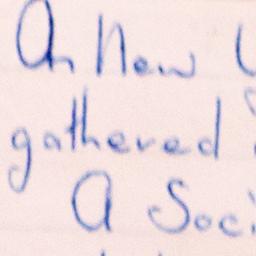 On New
gathered
A Soci